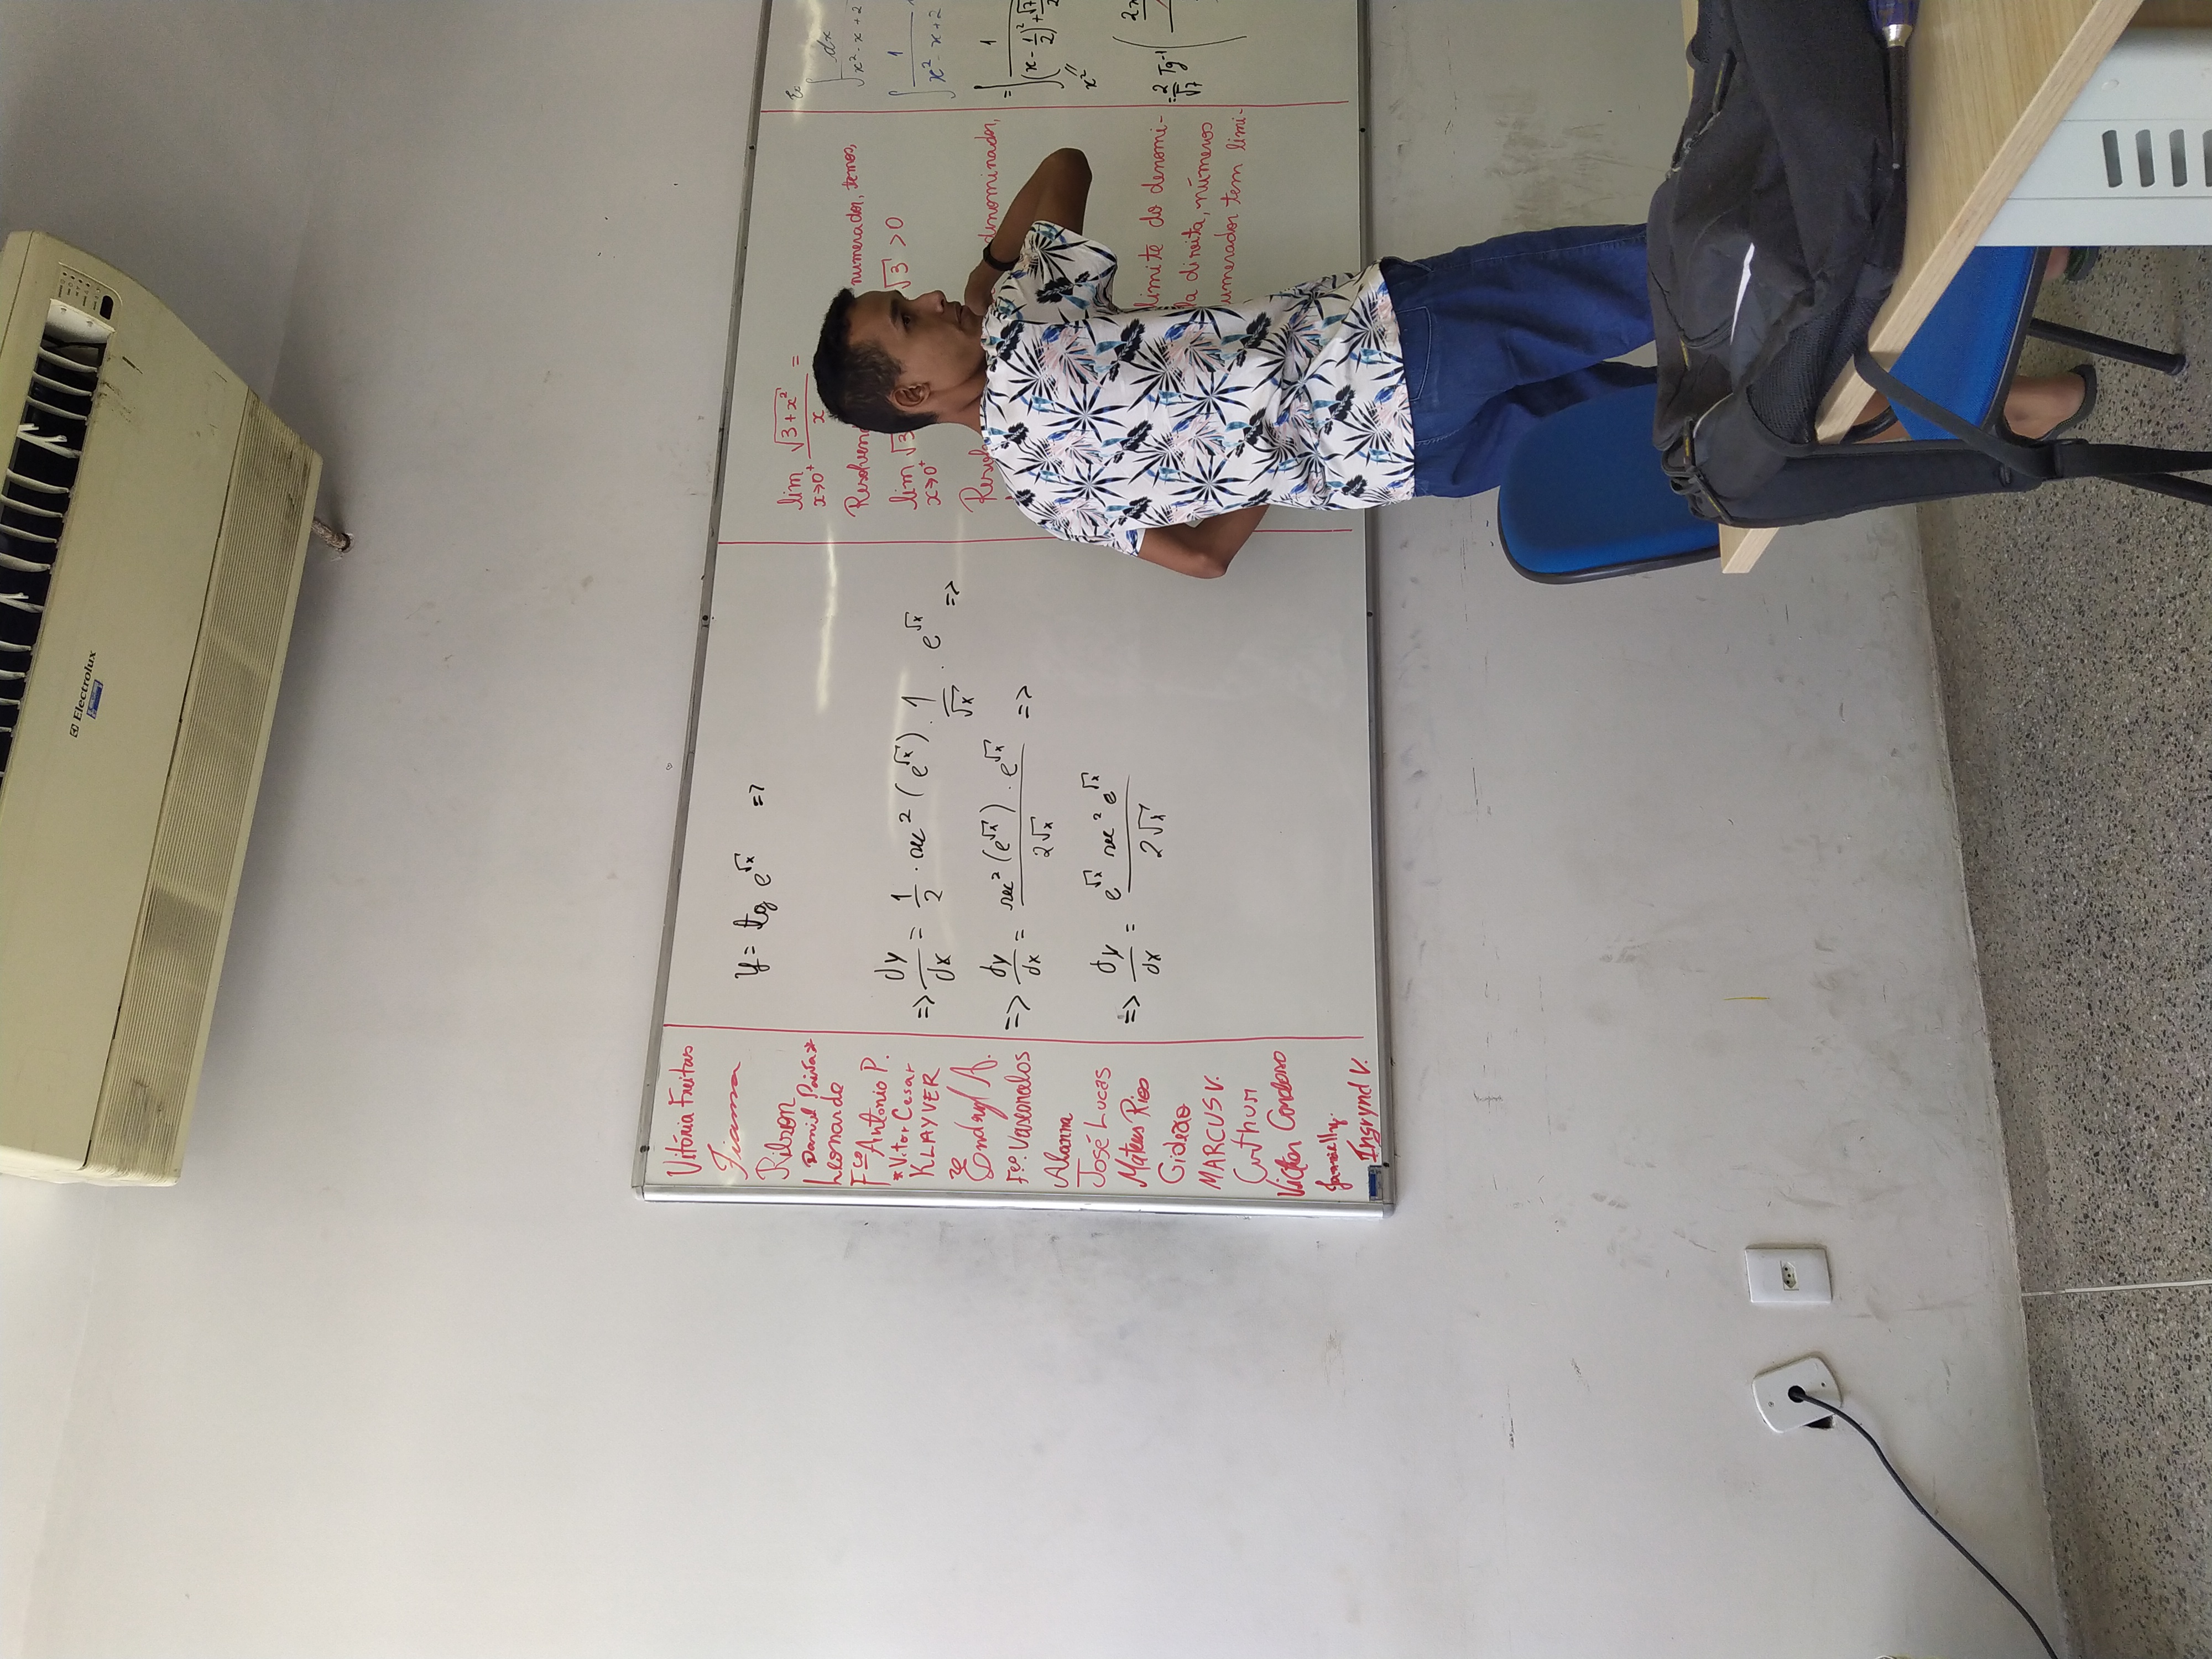 Electrolux
Vitória Freitas
Fianna
Ribson
Daniel Paiva*
Leonardo
Fco Antonio P.
*Vitor Cesar
KLAYVER
Endryl A.
Fco. Vasconcelos
Alanna
José Lucas
Mateus Rios
Gideão
MARCUS V.
Arthur
Victor Cardoso
Jamielly.
Ingrynd V.
y = tg e^√x =>
=> dy/dx = 1/2 · sec² (e^√x) · 1/√x · e^√x =>
=> dy/dx = sec² (e^√x) · e^√x / 2√x =>
=> dy/dx = e^√x sec² e^√x / 2√x
lim x→0⁺ √(3+x²) / x =
numerador, temos,
lim x→0⁺ √3
√3 > 0
denominador,
limite do denomi-
da direita, números
numerador tem limi-
∫ dx / x² - x + 2
∫ 1 / x² - x + 2
= ∫ 1 / (x - 1/2)² + √7/2
x²
= 2/√7 Tg⁻¹ ( 2x